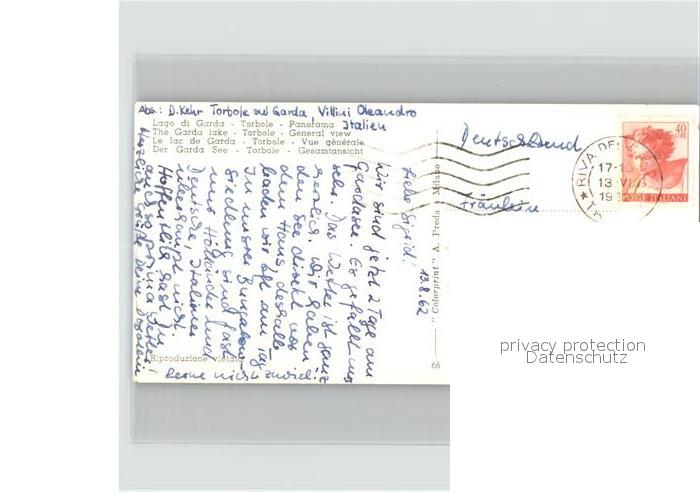 Abs.: D. Kehr Torbole sul Garda, Villini Oleandro
Italien
Lago di Garda - Torbole - Panorama
The Garda lake - Torbole - General view
Le lac de Garda - Torbole - Vue générale
Der Garda See - Torbole - Gesamtansicht
13.8.62
Liebe Sigrid!
Wir sind jetzt 2 Tage am
Gardasee. Es gefällt uns
sehr. Das Wetter ist ganz
herrlich. Wir haben
den See direkt vor
dem Haus deshalb
baden wir oft am Tag
In unserer Bungalow-
Siedlung sind fast
nur Holländer und
Deutsche, Italiener
überhaupt nicht
Hoffentlich hast Du
auch so prima Wetter
Herzliche Grüße Deine
Riproduzione vietata
"Colorprint" A. Preda - Milano
66
Deutschland
Fräulein
RIVA DEL
17-1
13 VIII
19
40
POSTE ITALIANE
privacy protection
Datenschutz